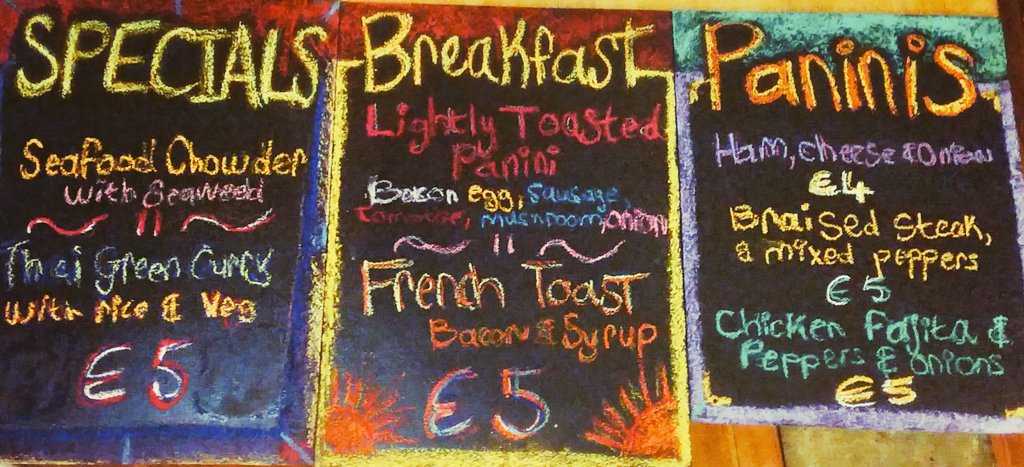 SPECIALS
Seafood Chowder
with Seaweed
"
Thai Green Curry
with rice & Veg
€5
Breakfast
Lightly Toasted
Panini
Bacon egg, sausage,
tomatoe, mushroom, onion
"
French Toast
Bacon & Syrup
€5
Paninis
Ham, cheese & Onion
€4
Braised Steak,
& mixed peppers
€5
Chicken Fajita &
Peppers & onions
€5